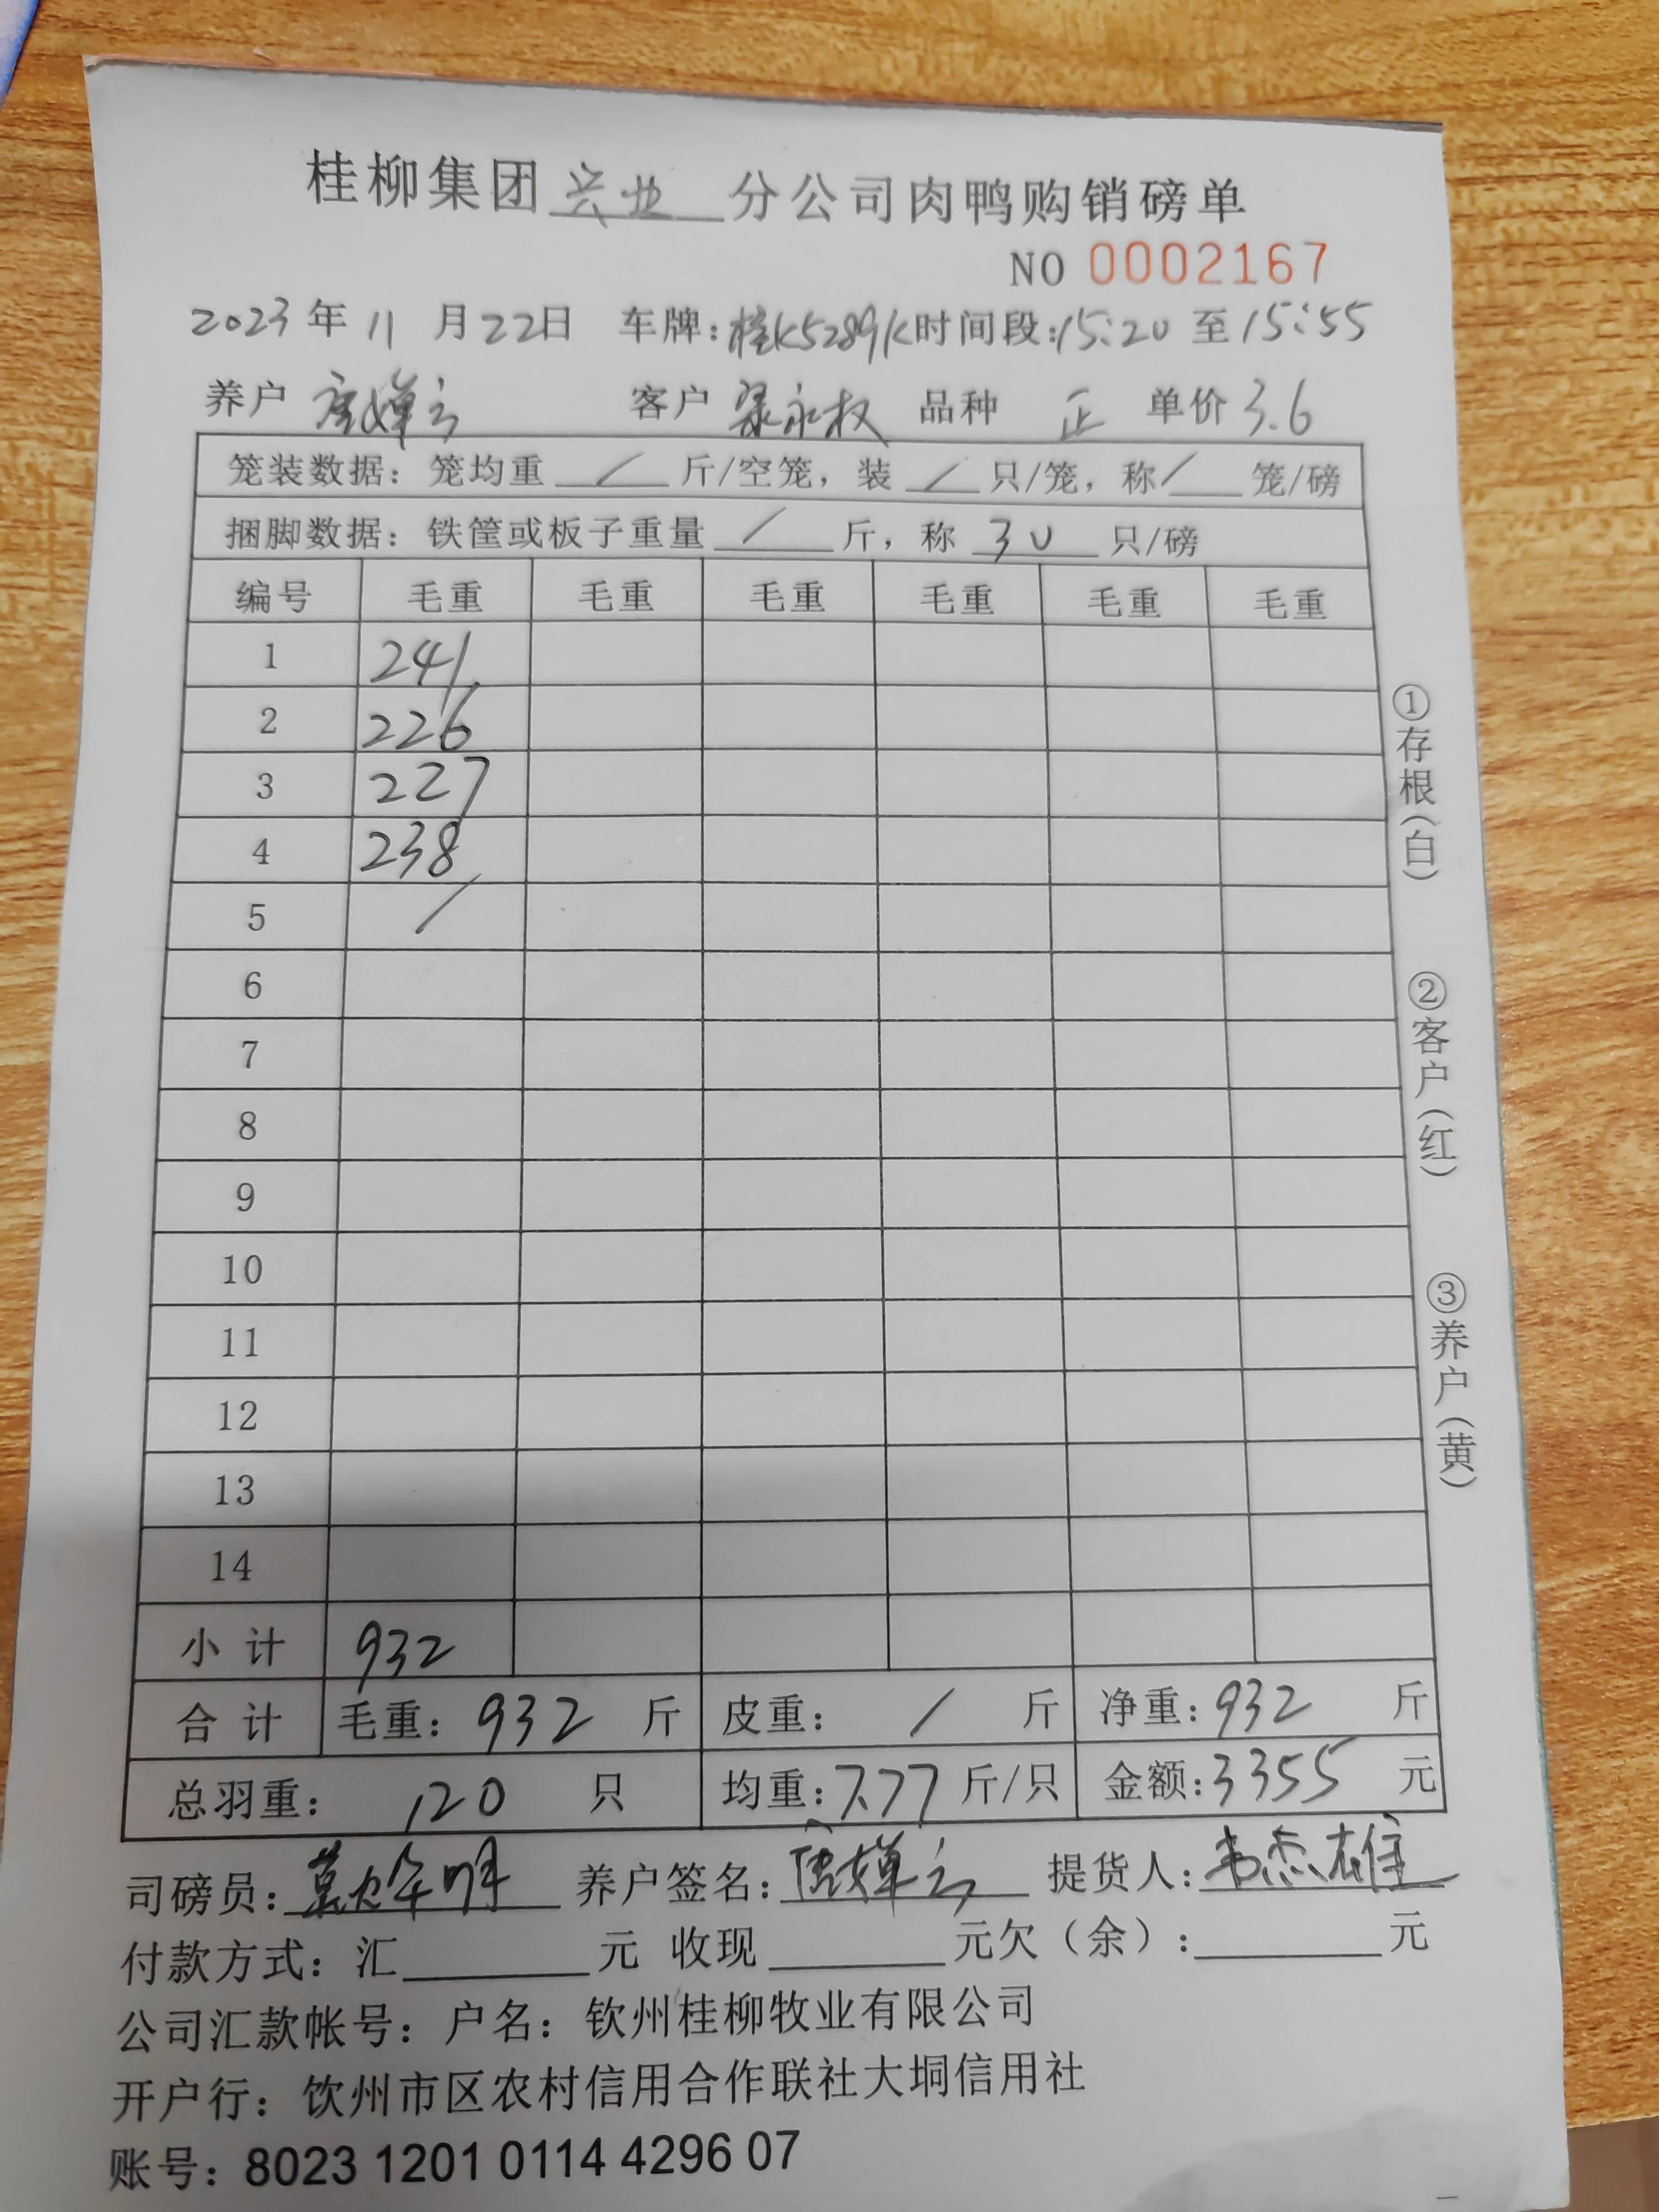 桂柳集团兴业分公司肉鸭购销磅单
NO 0002167
2023年11月22日 车牌:桂K5289K时间段:15:20至15:55
养户 唐婵云 客户 梁永权 品种 正 单价 3.6
笼装数据: 笼均重 / 斤/空笼, 装 / 只/笼, 称 / 笼/磅
捆脚数据: 铁筐或板子重量 / 斤, 称 30 只/磅
编号 毛重 毛重 毛重 毛重 毛重 毛重
1 241
2 226
3 227
4 238
5 /
6
7
8
9
10
11
12
13
14
小计 932
合计 毛重: 932 斤 皮重: / 斤 净重: 932 斤
总羽重: 120 只 均重: 7.77 斤/只 金额: 3355 元
司磅员: 养户签名: 唐婵云 提货人: 韦杰雄
付款方式: 汇 元 收现 元欠(余): 元
公司汇款帐号: 户名: 钦州桂柳牧业有限公司
开户行: 饮州市区农村信用合作联社大垌信用社
账号: 8023 1201 0114 4296 07
①存根(白)
②客户(红)
③养户(黄)